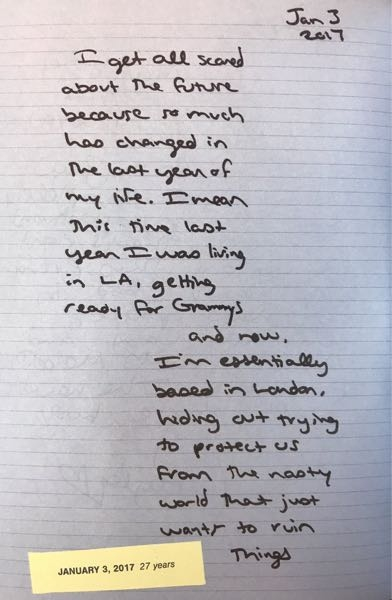 Jan 3
2017
I get all scared
about the future
because so much
has changed in
the last year of
my life. I mean
this time last
year I was living
in LA, getting
ready for Grammys
and now,
I'm essentially
based in London,
hiding out trying
to protect us
from the nasty
world that just
wants to ruin
things
JANUARY 3, 2017 27 years